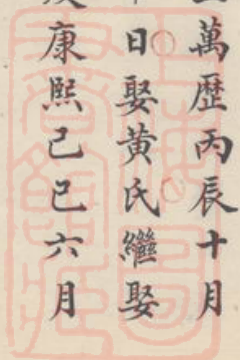 萬歷丙辰十月
日娶黃氏繼娶
康熙己巳六月